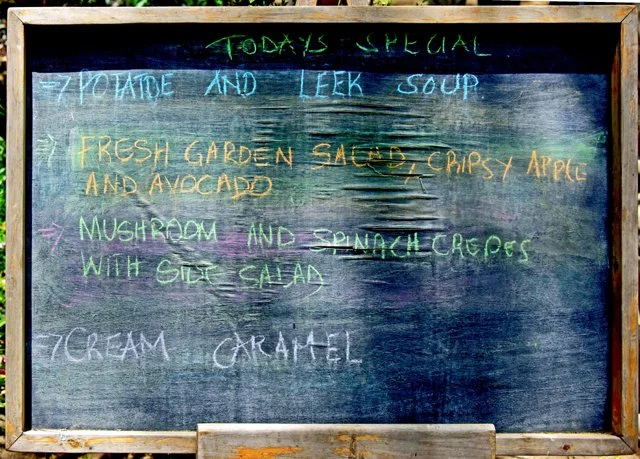 TODAYS SPECIAL
=> POTATOE AND LEEK SOUP.
=> FRESH GARDEN SALAD, CRIPSY APPLE
AND AVOCADO
=> MUSHROOM AND SPINACH CREPES
WITH SIDE SALAD
=> CREAM CARAMEL